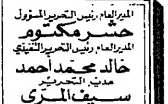 المدير العام رئيس التحرير المسؤول
حشر مكتوم
المدير العام رئيس التحرير التنفيذي
خالد محمد أحمد
مدير التحرير
سيف المري